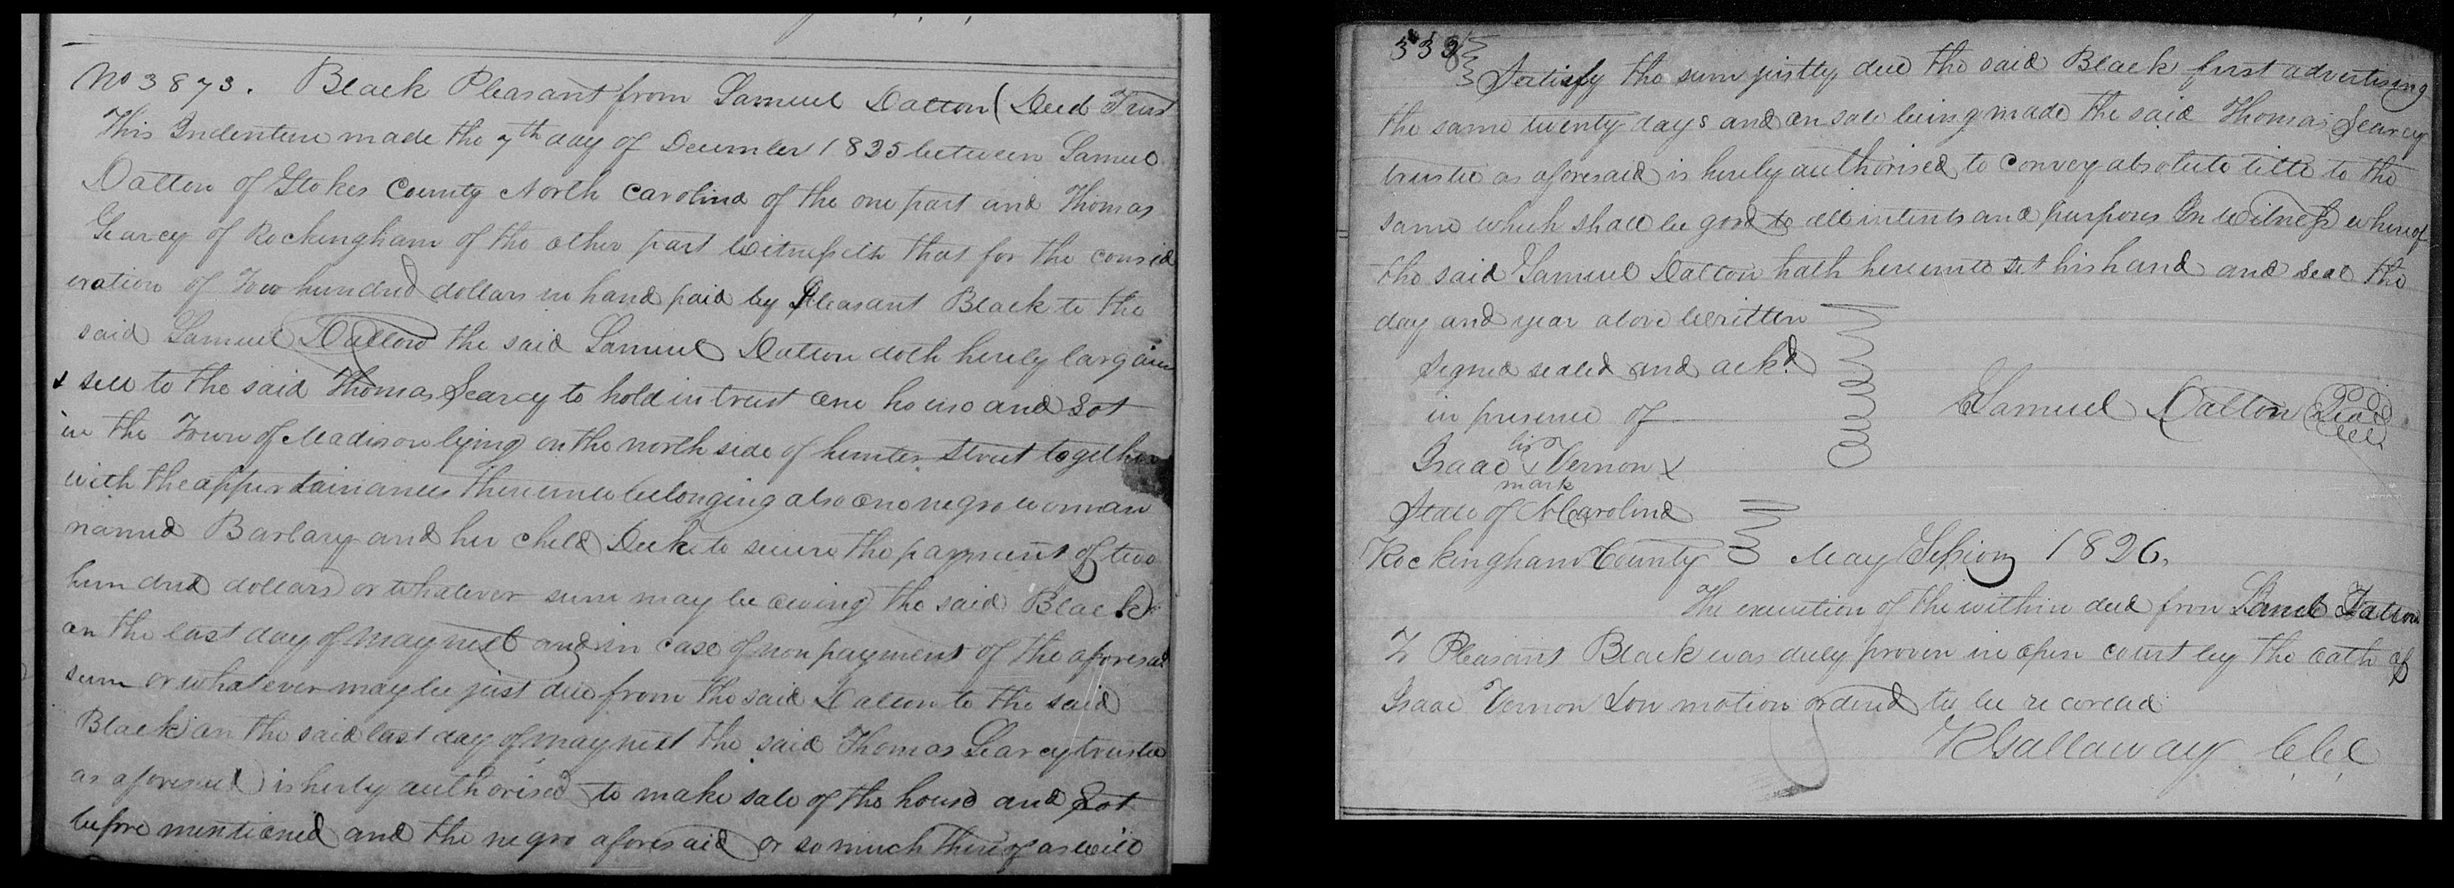 No 3873. Black Pleasant from Samuel Dalton (Deed Trust
This Indenture made the 7th day of December 1825 between Samuel
Dalton of Stokes County North Carolina of the one part and Thomas
Searcy of Rockingham of the other part Witnesseth that for the consid
eration of Two hundred dollars in hand paid by Pleasant Black to the
said Samuel Dalton the said Samuel Dalton doth hereby bargain
& sell to the said Thomas Searcy to hold in trust one house and Lot
in the Town of Madison lying on the north side of hunter Street together
with the appurtainances thereunto belonging also one negro woman
named Barbary and her child Deek to secure the payment of two
hundred dollars or whatever sum may be owing the said Black
on the last day of may next and in case of non payment of the aforesaid
sum or whatever may be just due from the said Dalton to the said
Black on the said last day of may next the said Thomas Searcy trustee
as aforesaid is herby authorised to make sale of the house and Lot
before mentioned and the negro aforesaid or so much thereof as will
332
Sattisfy the sum justly due the said Black first advertising
the same twenty days and on sale being made the said Thomas Searcy
trustee as aforesaid is hereby authorised to convey absolute title to the
same which shall be good to all intents and purposes In Witness whereof
the said Samuel Dalton hath hereunto set his hand and seal the
day and year above Written
Signed sealed and ackd
in presence of
Samuel Dalton Seal
his
Isaac x Vernon x
mark
State of N Carolina
Rockingham County May Session 1826.
The execution of the within deed from Saml Dalton
To Pleasant Black was duly proven in open court by the oath of
Isaac Vernon & on motion ordered to be recoread
R Gallaway C.C.C